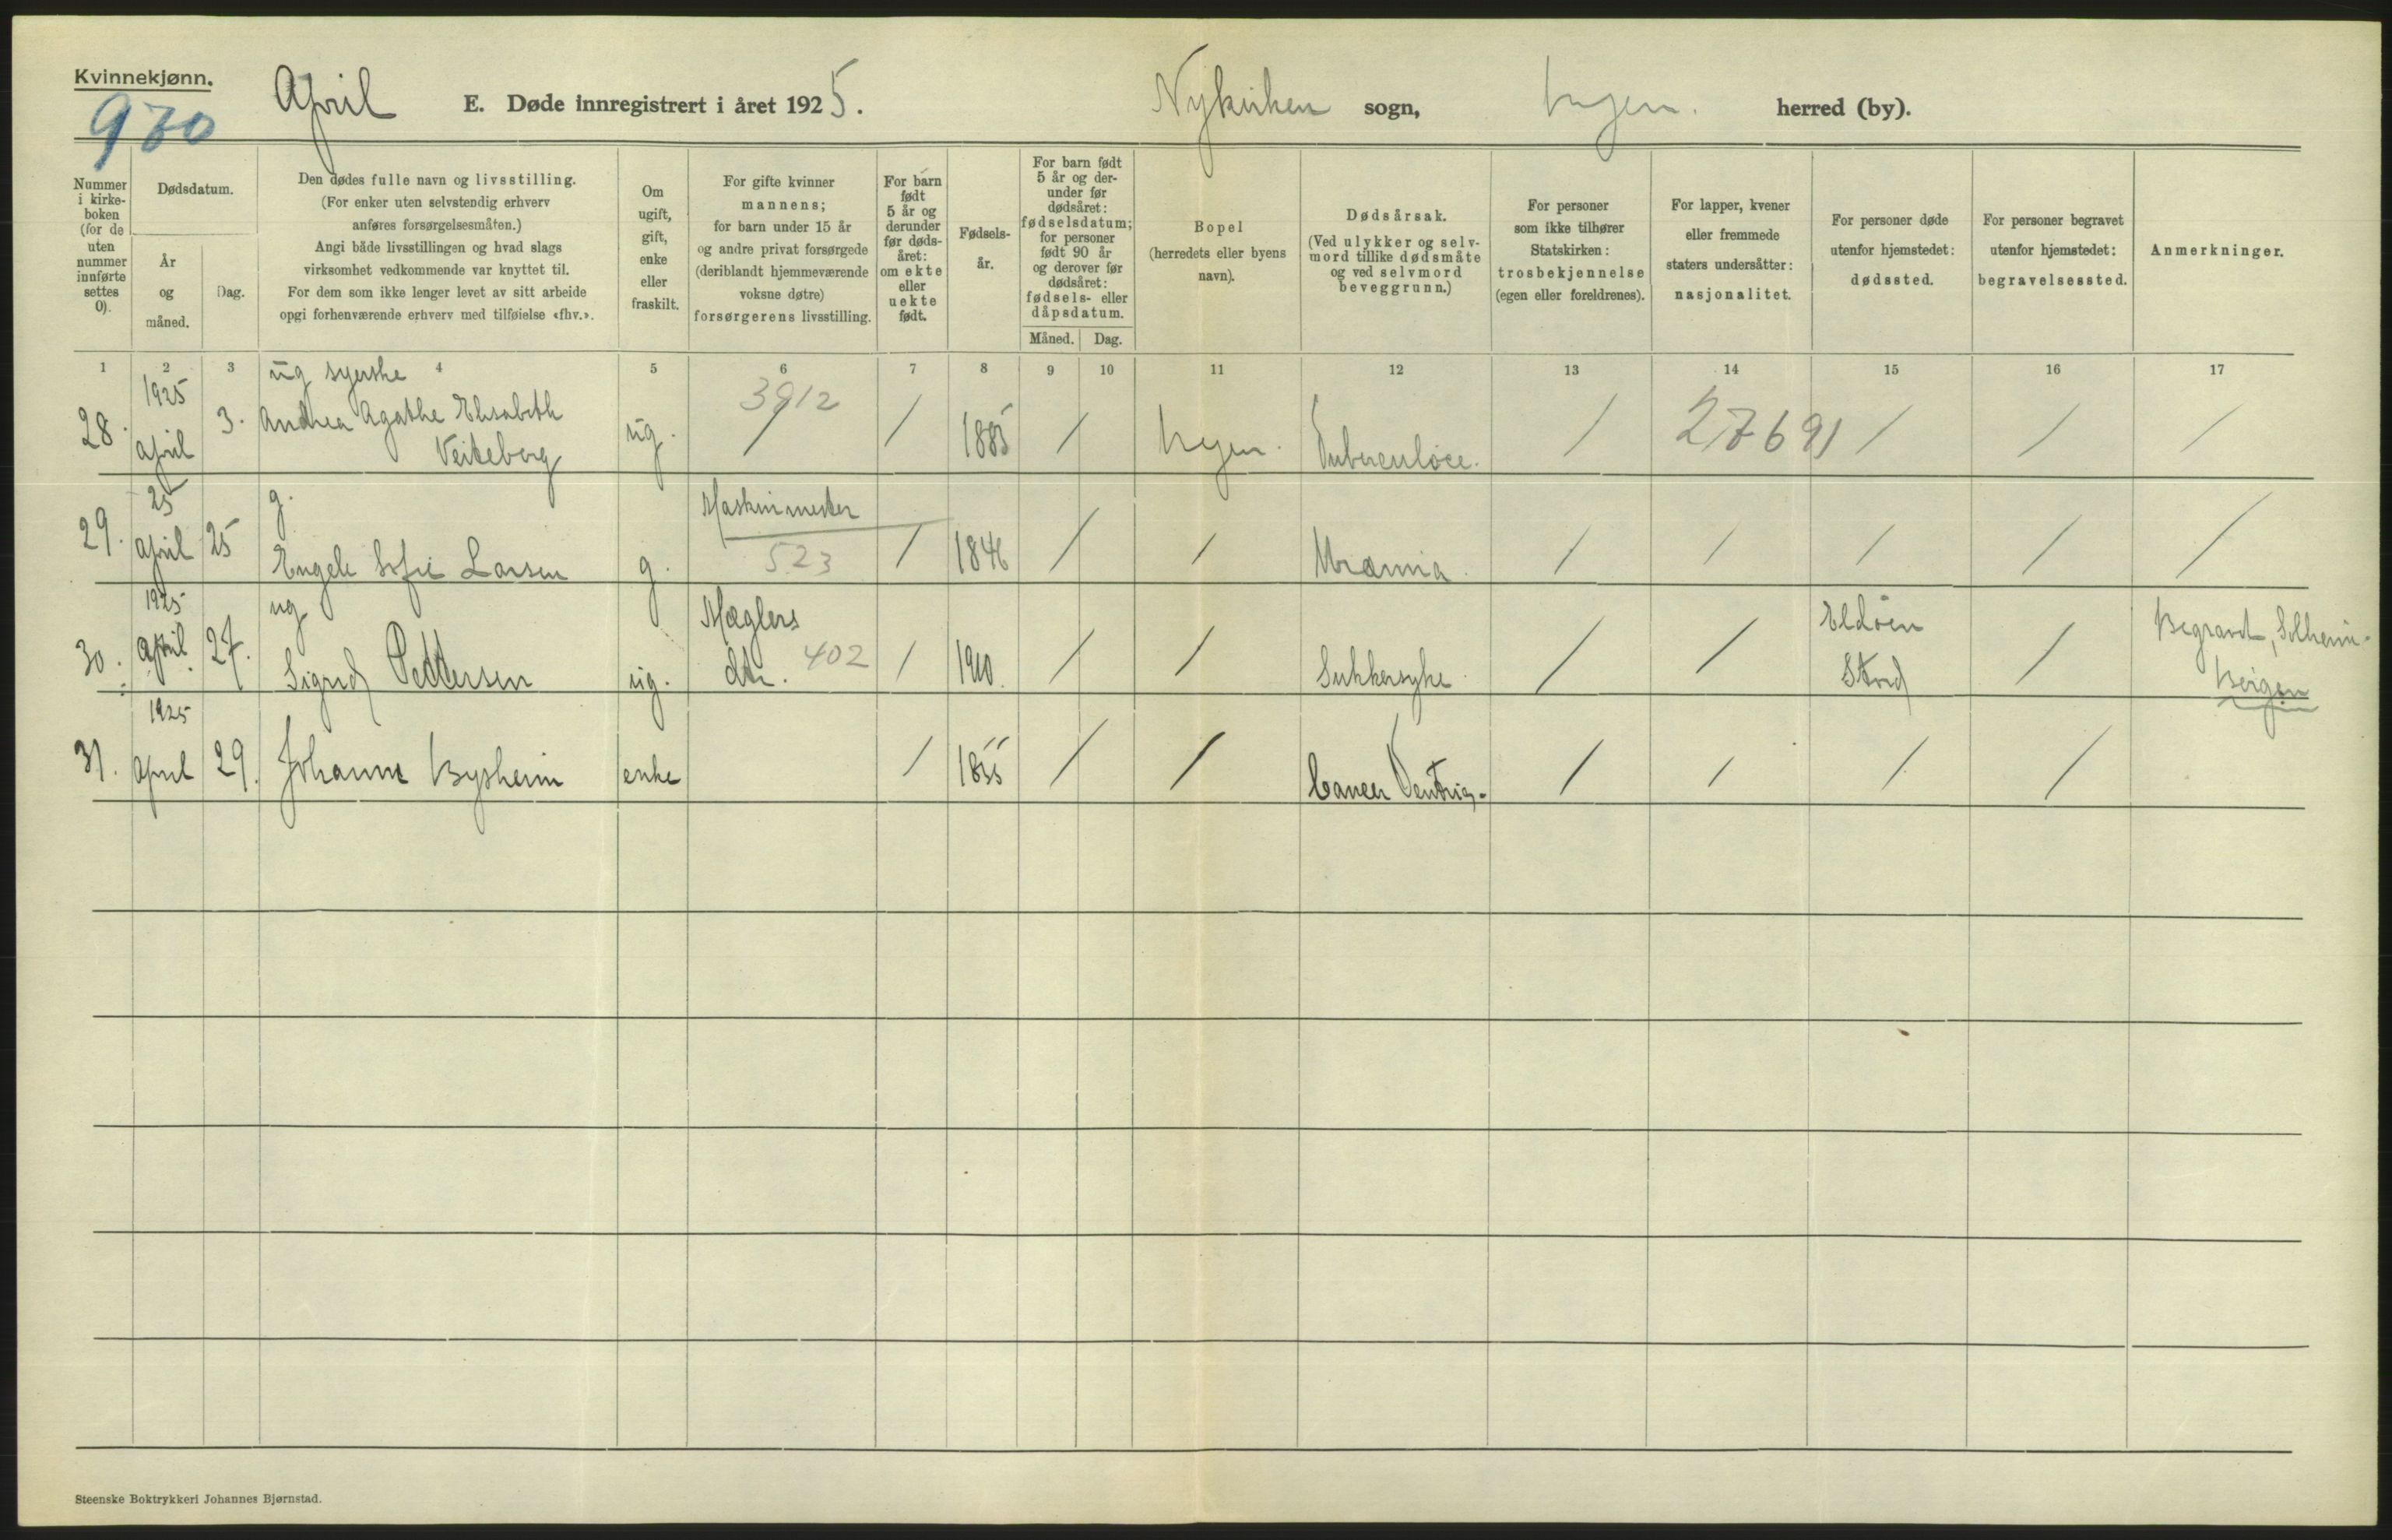 Kvinnekjønn.
970
April
E. Døde innregistrert i året 1925.
Nykirken sogn,
Bergen. herred (by).
Nummer i kirke-boken (for de uten nummer innførte settes 0).
Dødsdatum.
År og måned.
Dag.
Den dødes fulle navn og livsstilling.
(For enker uten selvstendig erhverv
anføres forsørgelsesmåten.)
Angi både livsstillingen og hvad slags
virksomhet vedkommende var knyttet til.
For dem som ikke lenger levet av sitt arbeide
opgi forhenværende erhverv med tilføielse «fhv.».
Om ugift, gift, enke eller fraskilt.
For gifte kvinner
mannens;
for barn under 15 år
og andre privat forsørgede
(deriblandt hjemmeværende
voksne døtre)
forsørgerens livsstilling.
For barn født 5 år og derunder før døds-året: om ekte eller uekte født.
Fødsels-år.
For barn født
5 år og der-
under før
dødsåret:
fødselsdatum;
for personer
født 90 år
og derover før
dødsåret:
fødsels- eller
dåpsdatum.
Måned. Dag.
Bopel
(herredets eller byens
navn).
Dødsårsak.
(Ved ulykker og selv-
mord tillike dødsmåte
og ved selvmord
beveggrunn.)
For personer
som ikke tilhører
Statskirken:
trosbekjennelse
(egen eller foreldrenes).
For lapper, kvener
eller fremmede
staters undersåtter:
nasjonalitet.
For personer døde
utenfor hjemstedet:
dødssted.
For personer begravet
utenfor hjemstedet:
begravelsessted.
Anmerkninger.
1 2 3 4 5 6 7 8 9 10 11 12 13 14 15 16 17
28. 1925 April 3. ug syerske Andrea Agathe Elisabeth Veiteberg ug. 3912 / / 1885 / Bergen. Tuberculose. / 27691 / / /
29. 25 April 25 g. Engele Sofie Larsen g. Maskinmester 523 / 1846 / / Uræmia. / / / / /
30. 1925 April 27. ug Sigrid Pettersen ug. Mæglers dtr. 402 / 1910. / / Sukkersyke / / Eldøen Stord / Begravet, Solheim. Bergen
31. 1925 April 29. Johanne Bysheim enke / 1855 / / Cancer Ventric. / / / /
Steenske Boktrykkeri Johannes Bjørnstad.